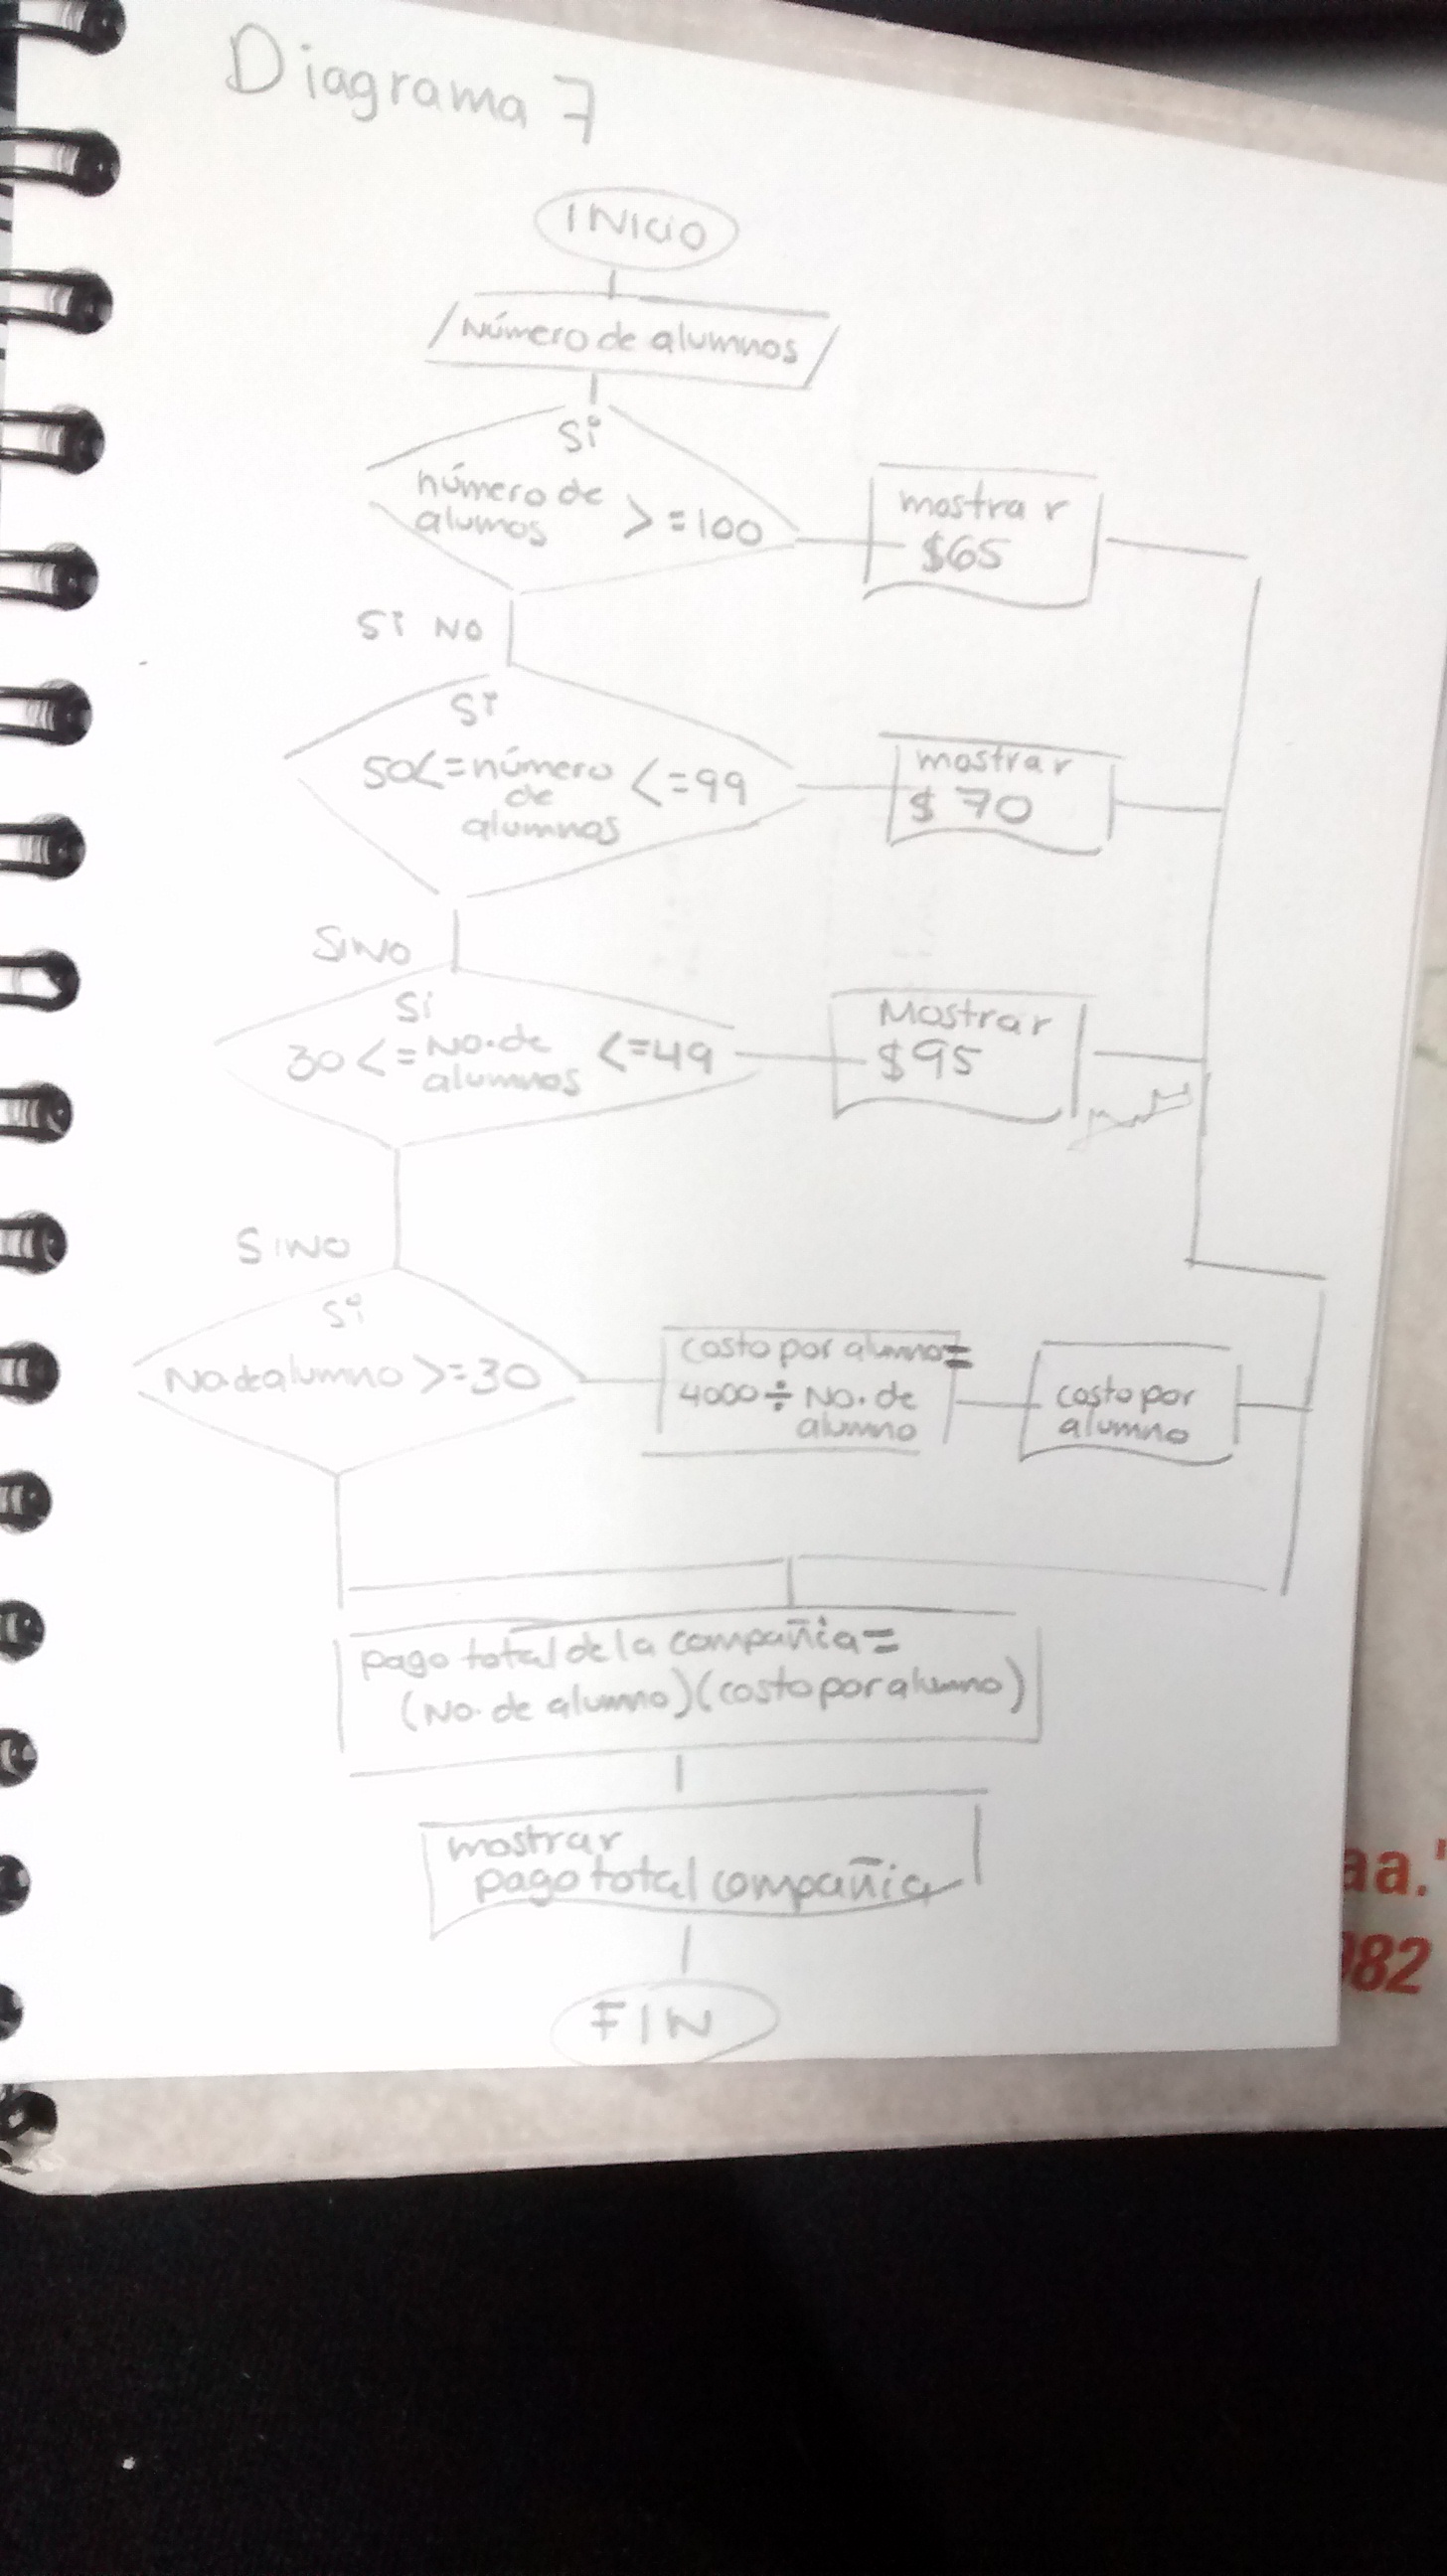 Diagrama 7
INICIO
Número de alumnos
Si
número de
alumos >=100
mostrar
$65
Si NO
Si
50<=número <=99
de
alumnos
mostrar
$ 70
SiNO
Si
30<=No. de <=49
alumnos
Mostrar
$95
SiNO
Si
No de alumno >=30
costo por alumno=
4000÷ No. de
alumno
costo por
alumno
pago total de la compañia=
(No. de alumno)(costo por alumno)
mostrar
pago total compañia
FIN
aa."
982